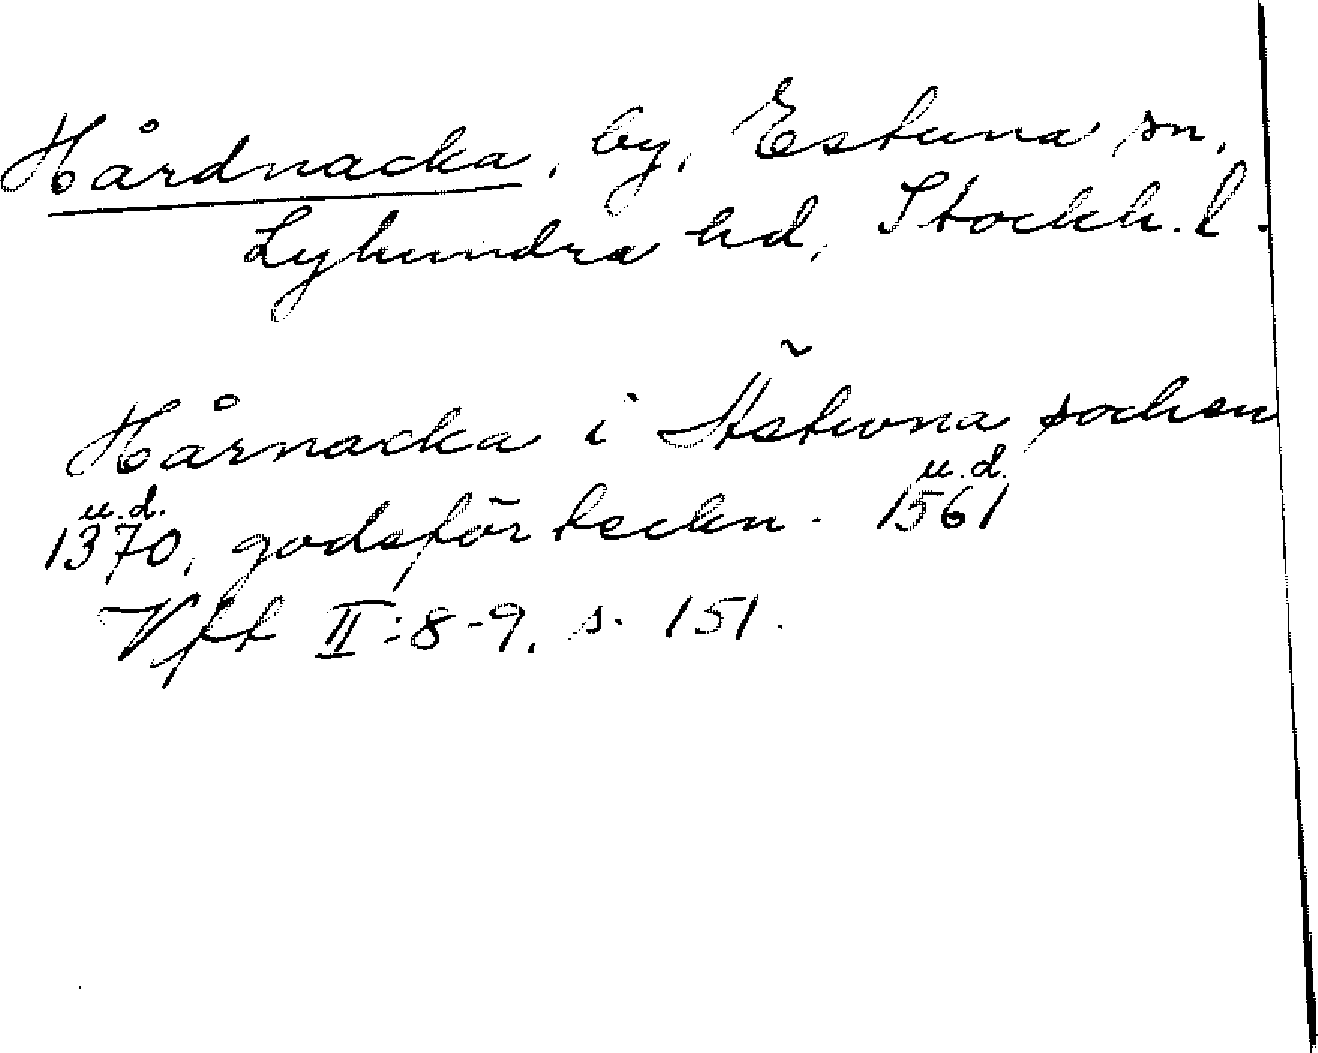 Hårdnacka, by, Estuna sn,
Lyhundra hd, Stockh. l.
Hårnacka i Ästwna sochen
u.d. u.d.
1370, godsförteckn. 1561
Vfft II:8-9, s. 151.